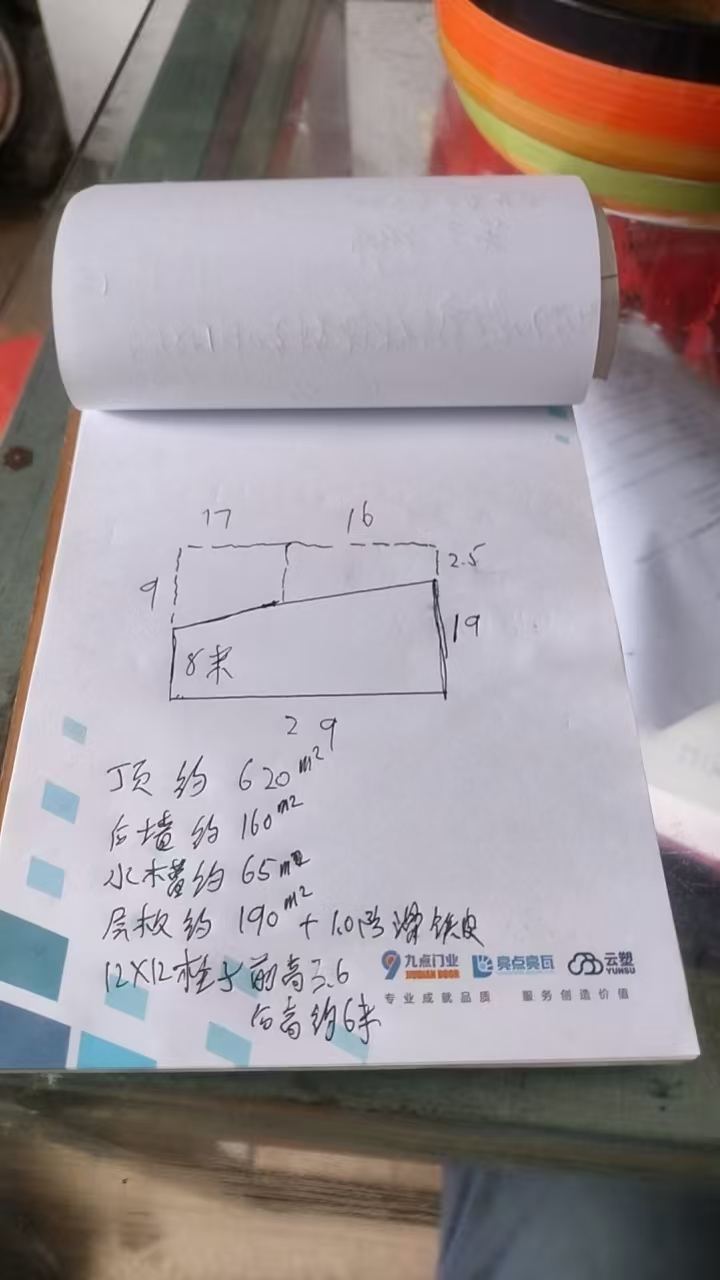 17
16
2.5
9
19
8米
29
顶 约 620m²
后墙 约 160m²
水槽约 65m
层板 约 190m² + 1.0 铁皮
12X12柱子 前高3.6
后高约6米
九点门业
JIUDIAN DOOR
亮点亮瓦
云塑
YUNSU
专业成就品质 服务创造价值